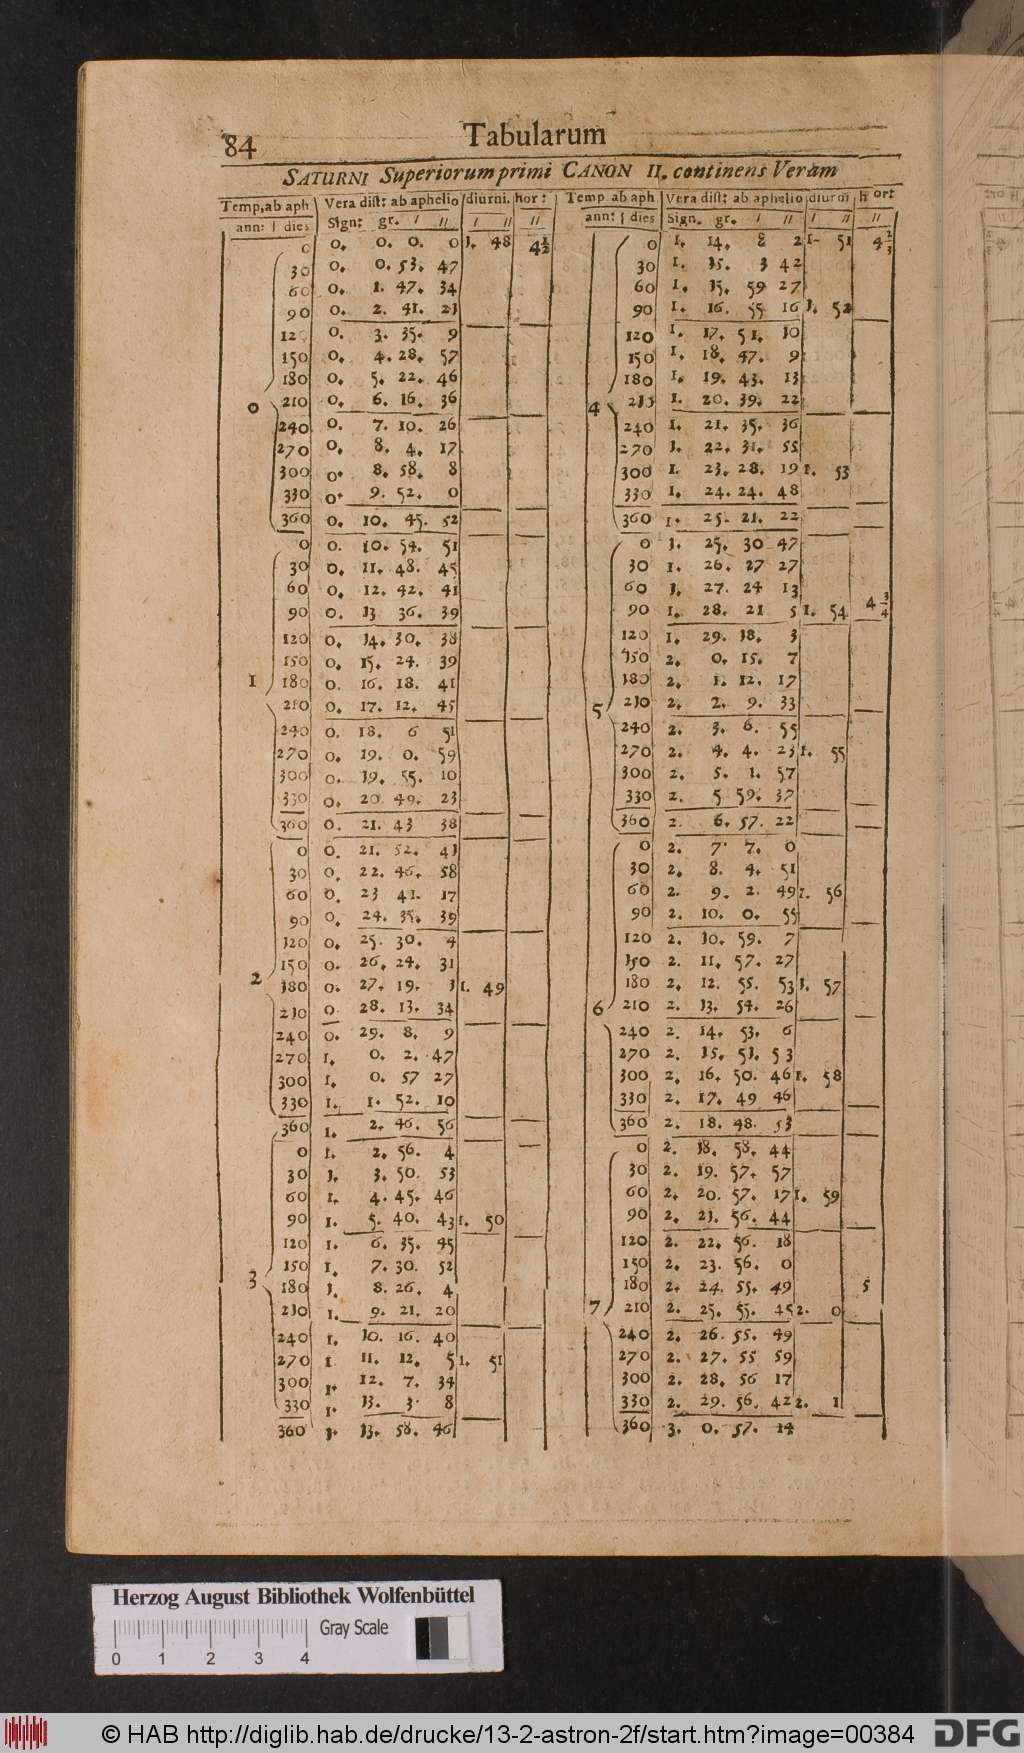 84 Tabularum
SATURNI Superiorum primi CANON II. continens Veram
Temp. ab aph Vera dist: ab aphelio diurni. hor:
ann: dies Sign: gr. ′ ″ ′ ″ ″
0 0. 0. 0. 0 1. 48 4½
30 0. 0. 53. 47
60 0. 1. 47. 34
90 0. 2. 41. 21
120 0. 3. 35. 9
150 0. 4. 28. 57
180 0. 5. 22. 46
0 210 0. 6. 16. 36
240 0. 7. 10. 26
270 0. 8. 4. 17
300 0. 8. 58. 8
330 0. 9. 52. 0
360 0. 10. 45. 52
0 0. 10. 54. 51
30 0. 11. 48. 45
60 0. 12. 42. 41
90 0. 13 36. 39
120 0. 14. 30. 38
150 0. 15. 24. 39
1 180 0. 16. 18. 41
210 0. 17. 12. 45
240 0. 18. 6 51
270 0. 19. 0. 59
300 0. 19. 55. 10
330 0. 20 49. 23
360 0. 21. 43 38
0 0. 21. 52. 41
30 0. 22. 46. 58
60 0. 23 41. 17
90 0. 24. 35. 39
120 0. 25. 30. 4
150 0. 26. 24. 31
2 180 0. 27. 19. 1 1. 49
210 0. 28. 13. 34
240 0. 29. 8. 9
270 1. 0. 2. 47
300 1. 0. 57 27
330 1. 1. 52. 10
360 1. 2. 46. 56
0 1. 2. 56. 4
30 1. 3. 50. 53
60 1. 4. 45. 46
90 1. 5. 40. 43 1. 50
120 1. 6. 35. 45
150 1. 7. 30. 52
3 180 1. 8. 26. 4
210 1. 9. 21. 20
240 1. 10. 16. 40
270 1 11. 12. 5 1. 51
300 1. 12. 7. 34
330 1. 13. 3. 8
360 1. 13. 58. 46
Temp. ab aph Vera dist: ab aphelio diurni hor:
ann: dies Sign. gr. ′ ″ ′ ″ ″
0 1. 14. 8 2 1. 51 4⅔
30 1. 15. 3 42
60 1. 15. 59 27
90 1. 16. 55 16 1. 52
120 1. 17. 51. 10
150 1. 18. 47. 9
180 1. 19. 43. 13
4 210 1. 20. 39. 22
240 1. 21. 35. 36
270 1. 22. 31. 55
300 1. 23. 28. 19 1. 53
330 1. 24. 24. 48
360 1. 25. 21. 22
0 1. 25. 30 47
30 1. 26. 27 27
60 1. 27. 24 13
90 1. 28. 21 5 1. 54 4¾
120 1. 29. 18. 3
150 2. 0. 15. 7
180 2. 1. 12. 17
5 210 2. 2. 9. 33
240 2. 3. 6. 55
270 2. 4. 4. 23 1. 55
300 2. 5. 1. 57
330 2. 5 59. 37
360 2. 6. 57. 22
0 2. 7. 7. 0
30 2. 8. 4. 51
60 2. 9. 2. 49 1. 56
90 2. 10. 0. 55
120 2. 10. 59. 7
150 2. 11. 57. 27
180 2. 12. 55. 53 1. 57
6 210 2. 13. 54. 26
240 2. 14. 53. 6
270 2. 15. 51. 53
300 2. 16. 50. 46 1. 58
330 2. 17. 49 46
360 2. 18. 48. 53
0 2. 18. 58. 44
30 2. 19. 57. 57
60 2. 20. 57. 17 1. 59
90 2. 21. 56. 44
120 2. 22. 56. 18
150 2. 23. 56. 0
180 2. 24. 55. 49 5
7 210 2. 25. 55. 45 2. 0
240 2. 26. 55. 49
270 2. 27. 55 59
300 2. 28. 56 17
330 2. 29. 56. 42 2. 1
360 3. 0. 57. 14
Herzog August Bibliothek Wolfenbüttel
Gray Scale
0 1 2 3 4
© HAB http://diglib.hab.de/drucke/13-2-astron-2f/start.htm?image=00384 DFG